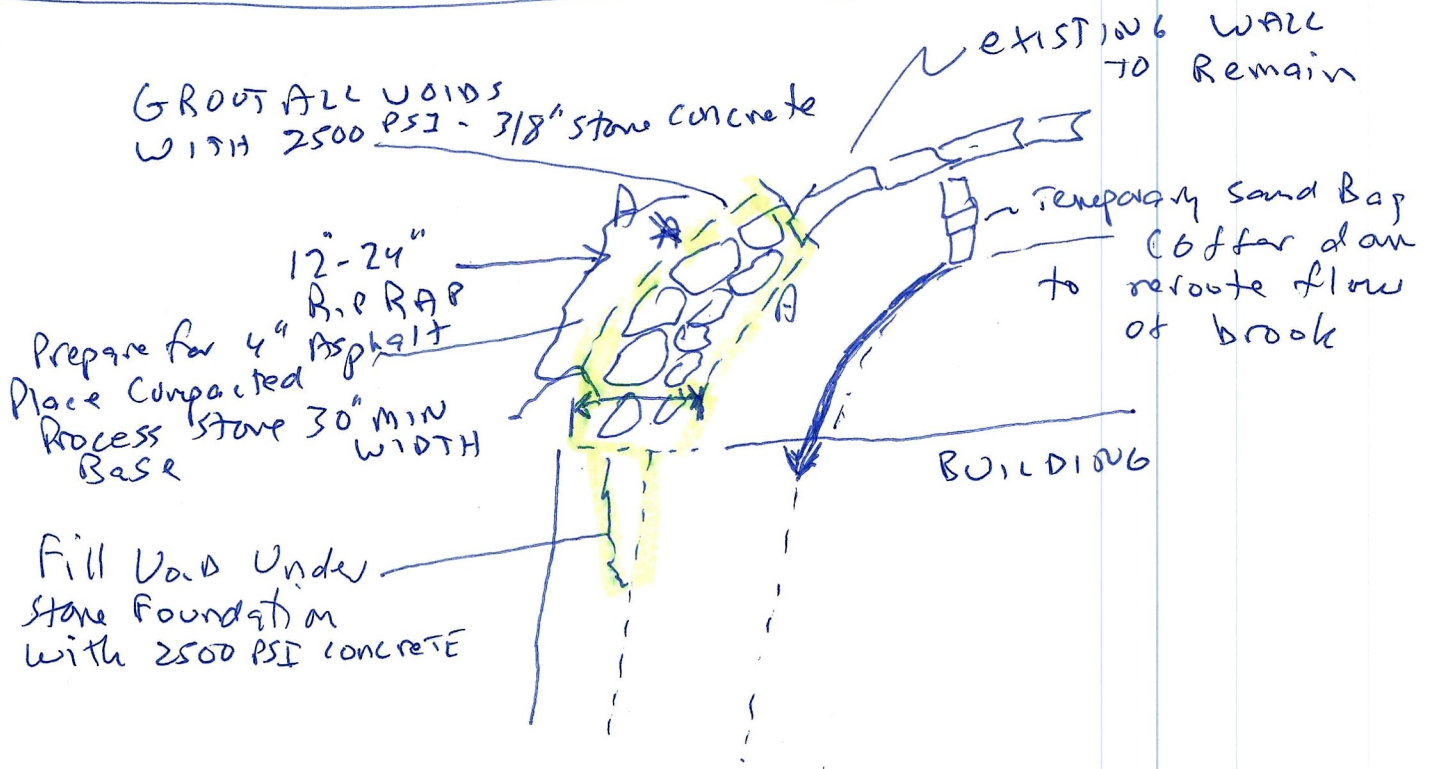 EXISTING WALL
TO Remain
GROUT ALL VOIDS
WITH 2500 PSI - 3/8" stone concrete
A
A
Temporary Sand Bag
Coffer dam
to reroute flow
of brook
12"-24"
RIP RAP
Prepare for 4" Asphalt
Place Compacted
Process Stone
Base
30" MIN
WIDTH
BUILDING
Fill Void Under
Stone Foundation
With 2500 PSI CONCRETE